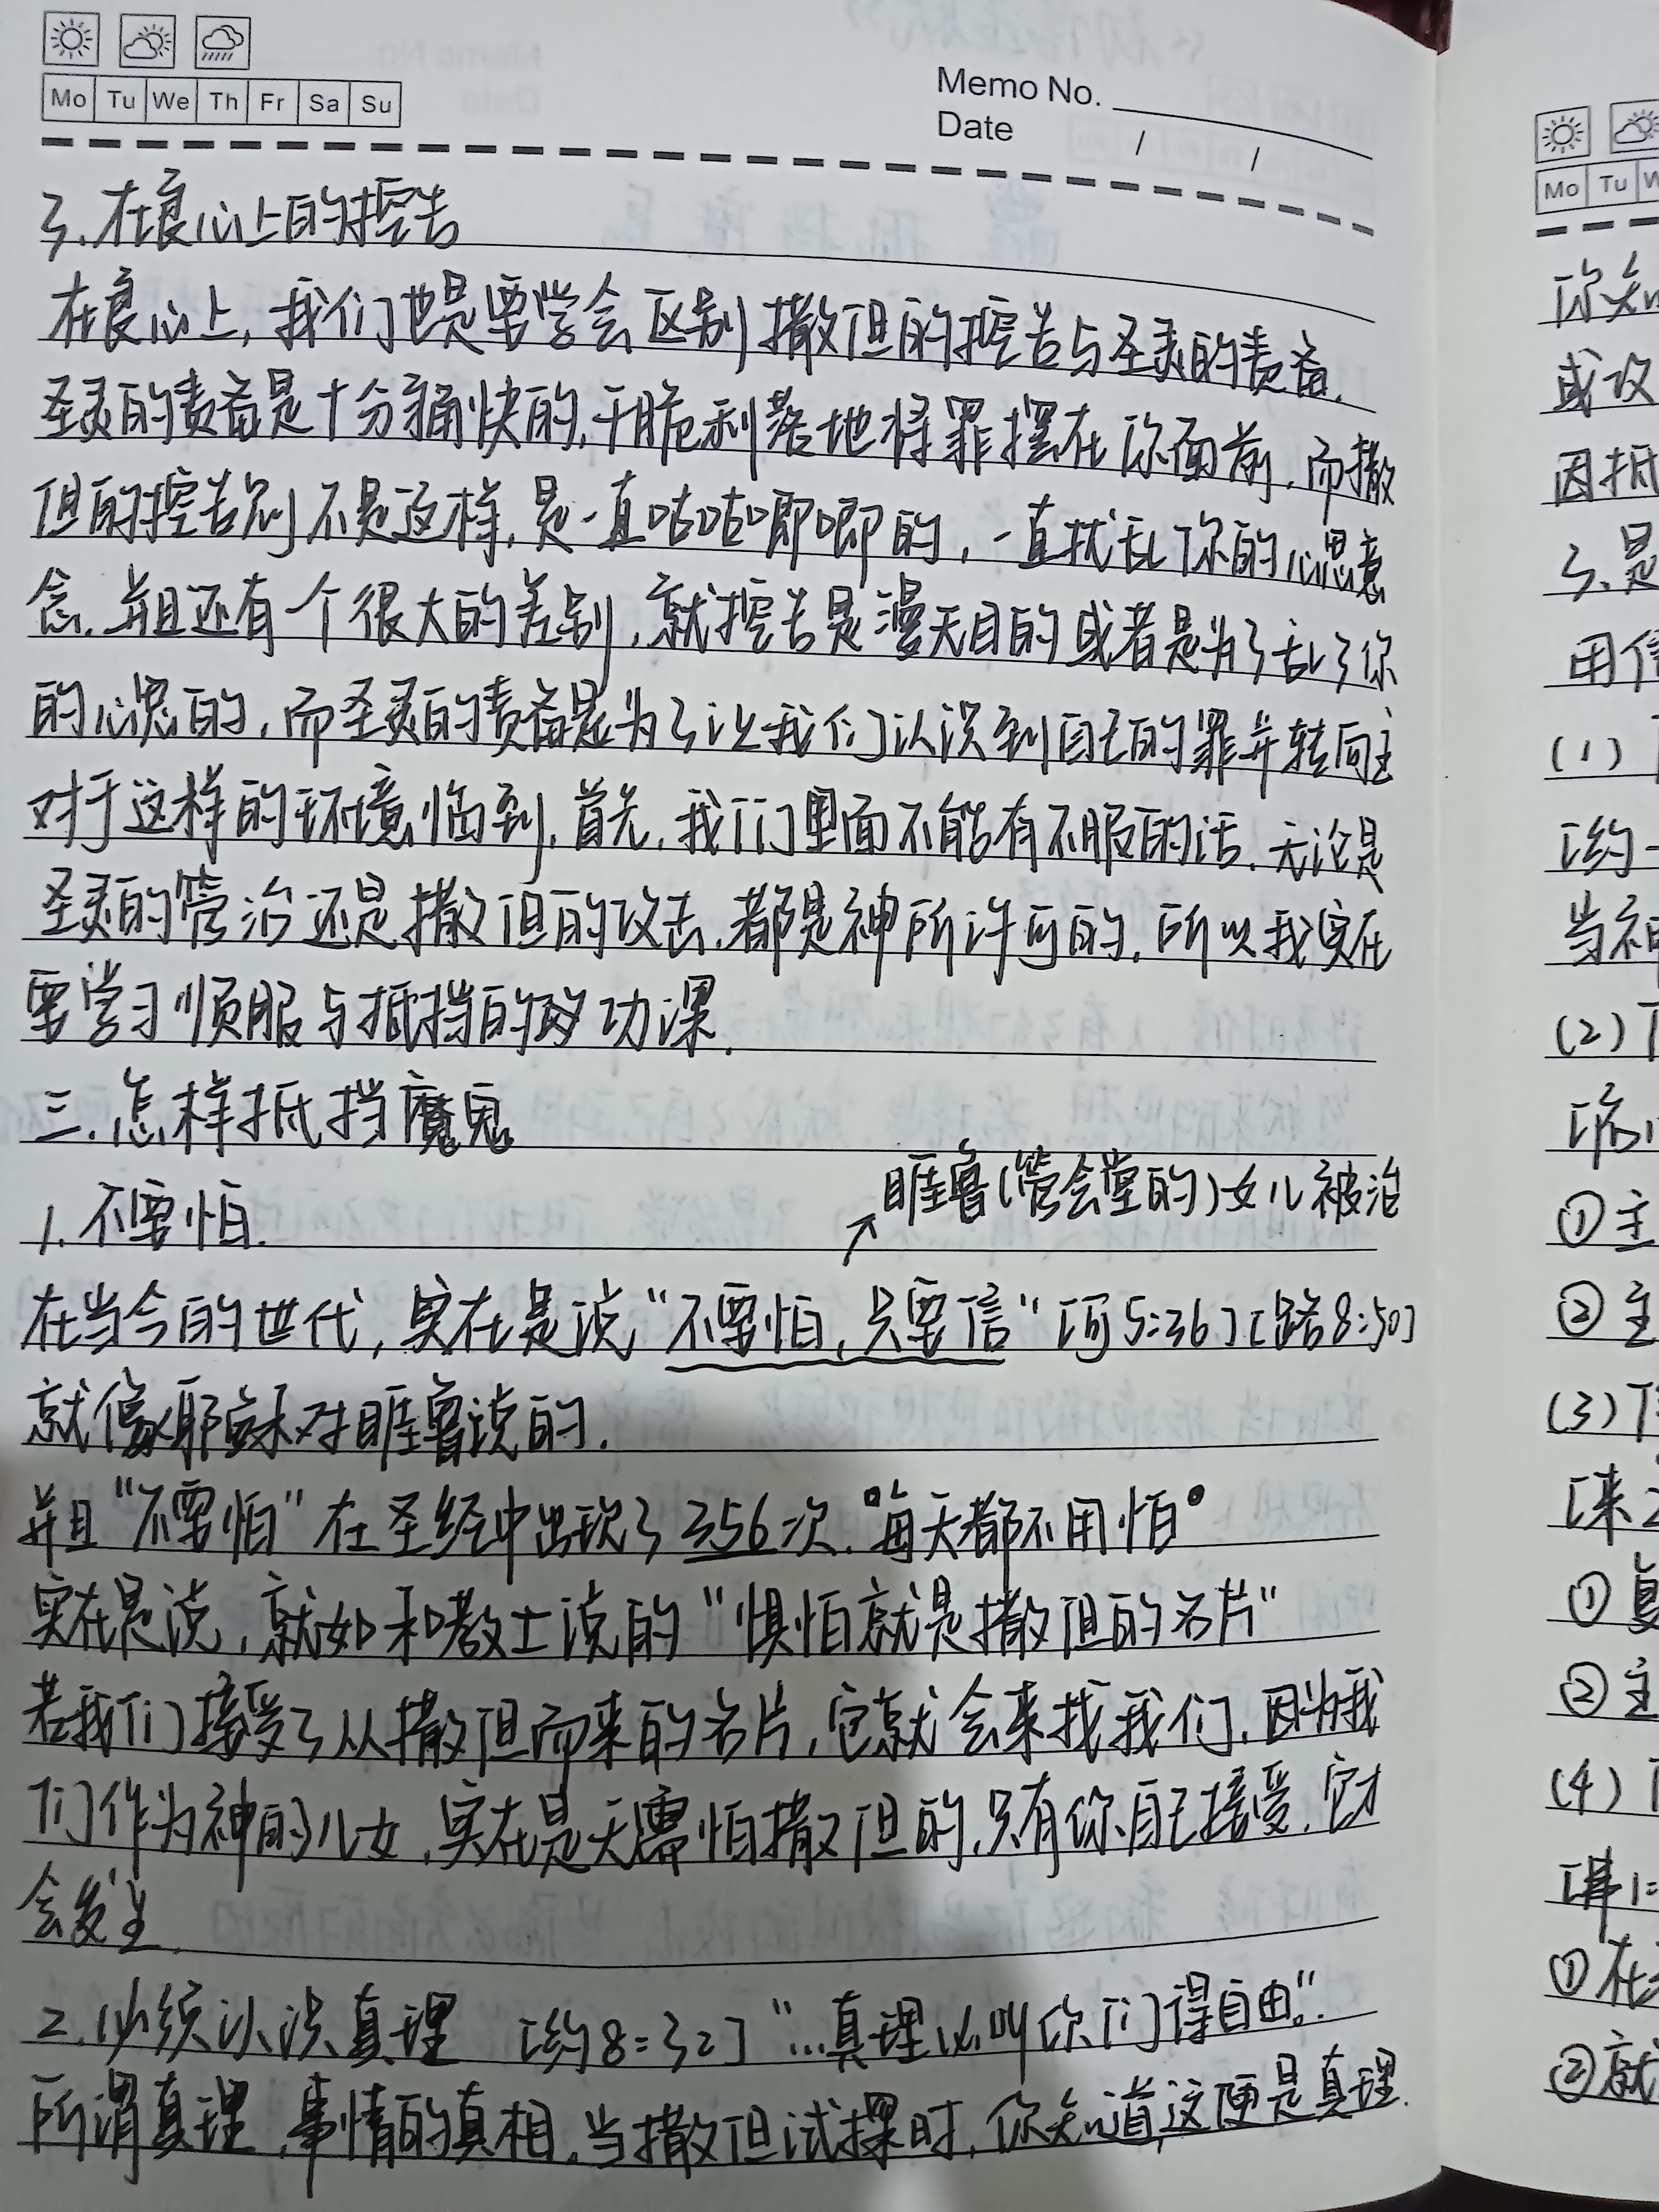 Mo Tu We Th Fr Sa Su
Memo No.
Date / /
3. 在良心上的控告
在良心上, 我们也是要学会区别撒但的控告与圣灵的责备.
圣灵的责备是十分痛快的, 干脆利落地将罪摆在你面前. 而撒
但的控告则不是这样, 是一直咕咕唧唧的, 一直扰乱你的心思意
念. 并且还有一个很大的差别, 就控告是漫无目的或者是为了乱了你
的心思的, 而圣灵的责备是为了让我们认识到自己的罪并转向主
对于这样的环境临到, 首先, 我们里面不能有不服的话. 无论是
圣灵的管治还是撒但的攻击, 都是神所许可的. 所以我实在
要学习顺服与抵挡的功课.
三. 怎样抵挡魔鬼
1. 不要怕.
↗睚鲁(管会堂的)女儿被治
在当今的世代, 实在是说“不要怕, 只要信” [可5:36] [路8:50]
就像耶稣对睚鲁说的.
并且“不要怕”在圣经中出现了356次. “每天都不用怕”
实在是说, 就如和教士说的“惧怕就是撒但的名片”
若我们接受了从撒但而来的名片, 它就会来找我们. 因为我
们作为神的儿女, 实在是无需怕撒但的, 只有你自己接受, 它才
会发生.
2. 必须认识真理 [约8:32] “...真理必叫你们得自由.”.
所谓真理, 事情的真相. 当撒但试探时, 你知道这便是真理.
Mo Tu
你知
或攻
因抵
3. 是
用信
(1)
[约一
当神
(2)
① 主
② 主
(3)
[来2
①
② 主
(4)
① 在
② 就